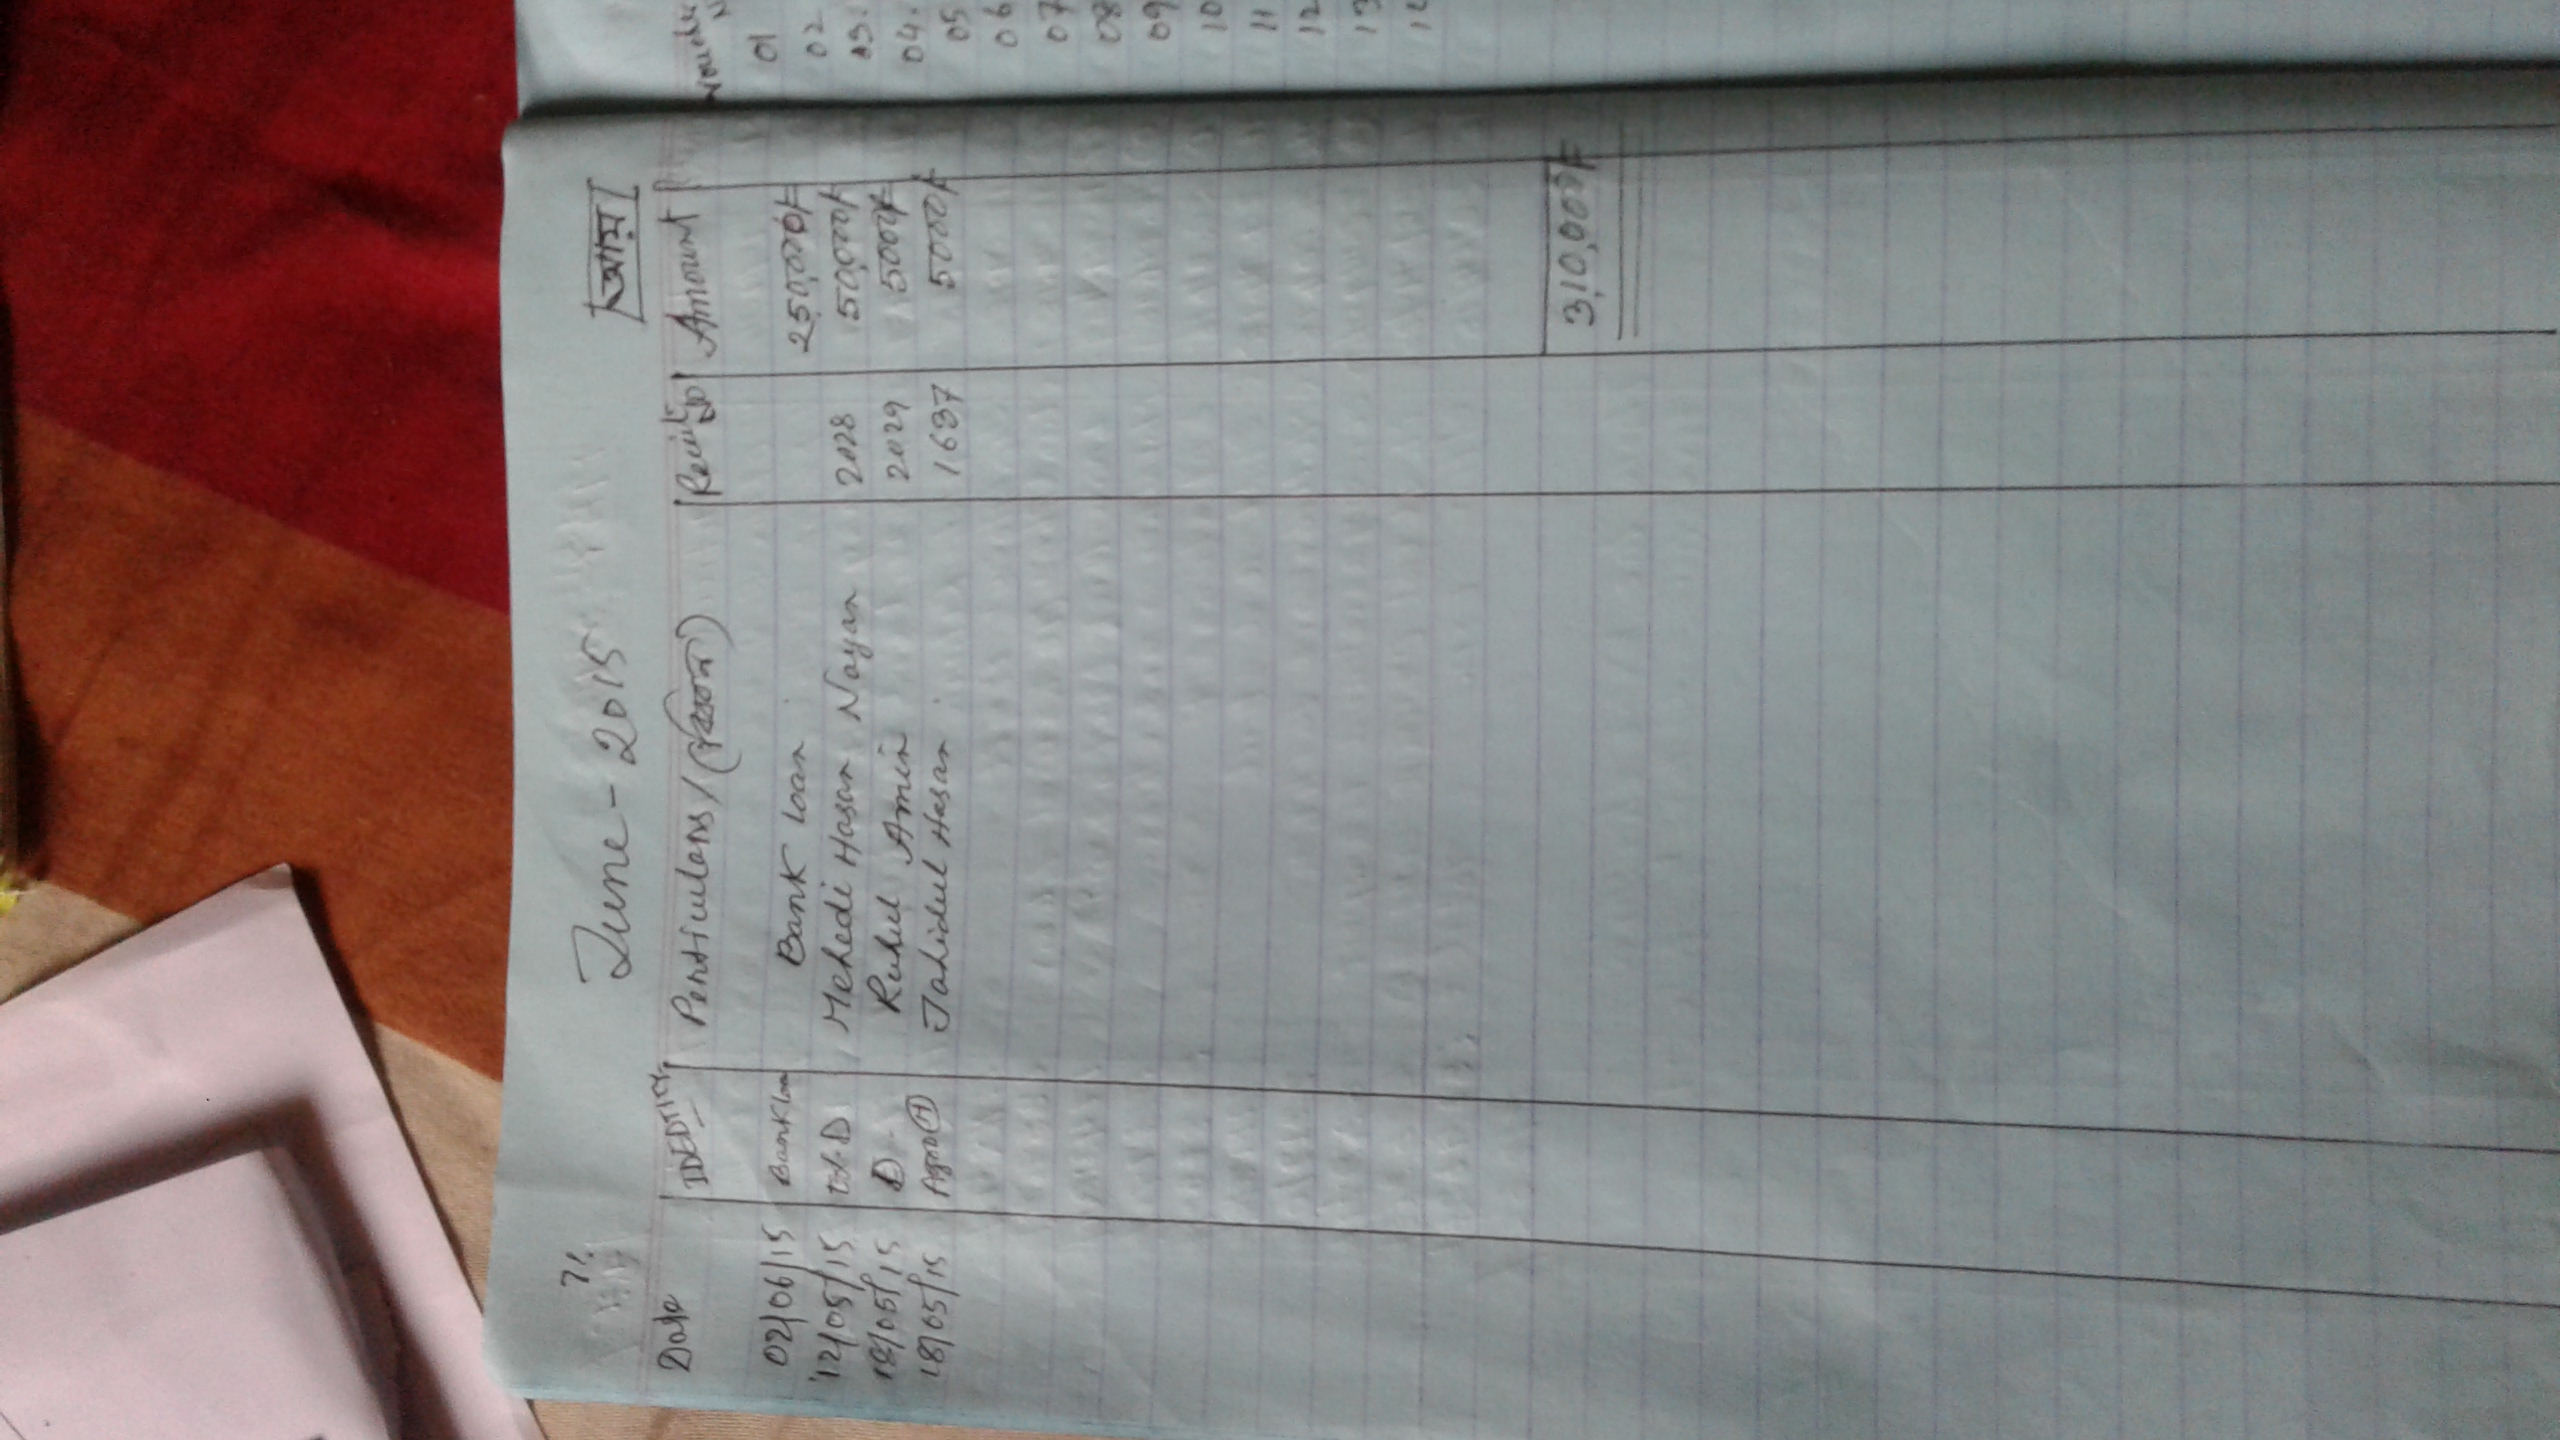 71
June - 2015
আয়
Date IDEDTITY Perticulars / (বিবরন) Reciit No Amount
02/06/15 Bank loan Bank loan 250,000/=
12/05/15 D Mehedi Hasan Nayan 2028 50,000/=
18/05/15 D Ruhul Amin 2029 5000/=
18/05/15 Agro (H) Jahidul Hasan 1637 5000/=
3,10,000/=
Voucher N
01
02
03.
04.
05
06
07
08
09
10
11
12
13